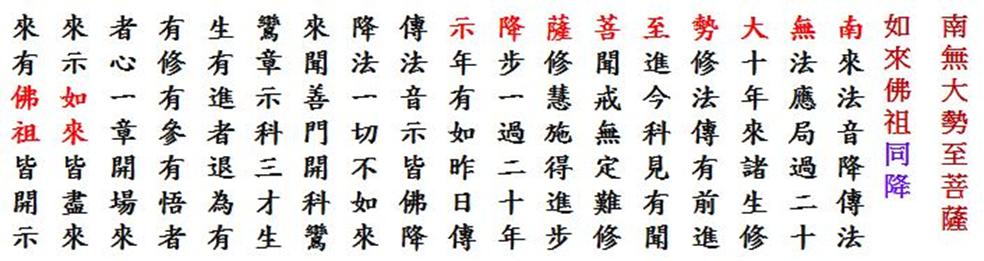 南無大勢至菩薩
如來佛祖同降
南來法音降傳法
無法應局過二十
大十年來諸生修
勢修法傳有前進
至進今科見有聞
菩聞戒無定難修
薩修慧施得進步
降步一過二十年
示年有如昨日傳
傳法音示皆佛降
降法一切不如來
來聞善門開科鸞
鸞章示科三才生
生有進者退為有
有修有參有悟者
者心一章開場來
來示如來皆盡來
來有佛祖皆開示